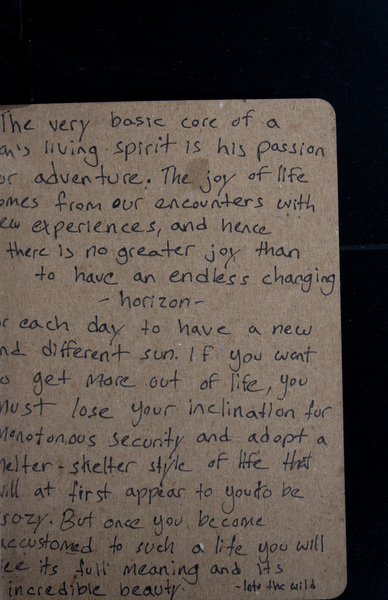 The very basic core of a
an's living spirit is his passion
or adventure. The joy of life
omes from our encounters with
ew experiences, and hence
there is no greater joy than
to have an endless changing
- horizon -
r each day to have a new
nd different sun. If you want
o get more out of life, you
must lose your inclination for
monotonous security and adopt a
helter-skelter style of life that
will at first appear to you to be
crazy. But once you become
accustomed to such a life you will
see its full meaning and its
incredible beauty. - Into the wild